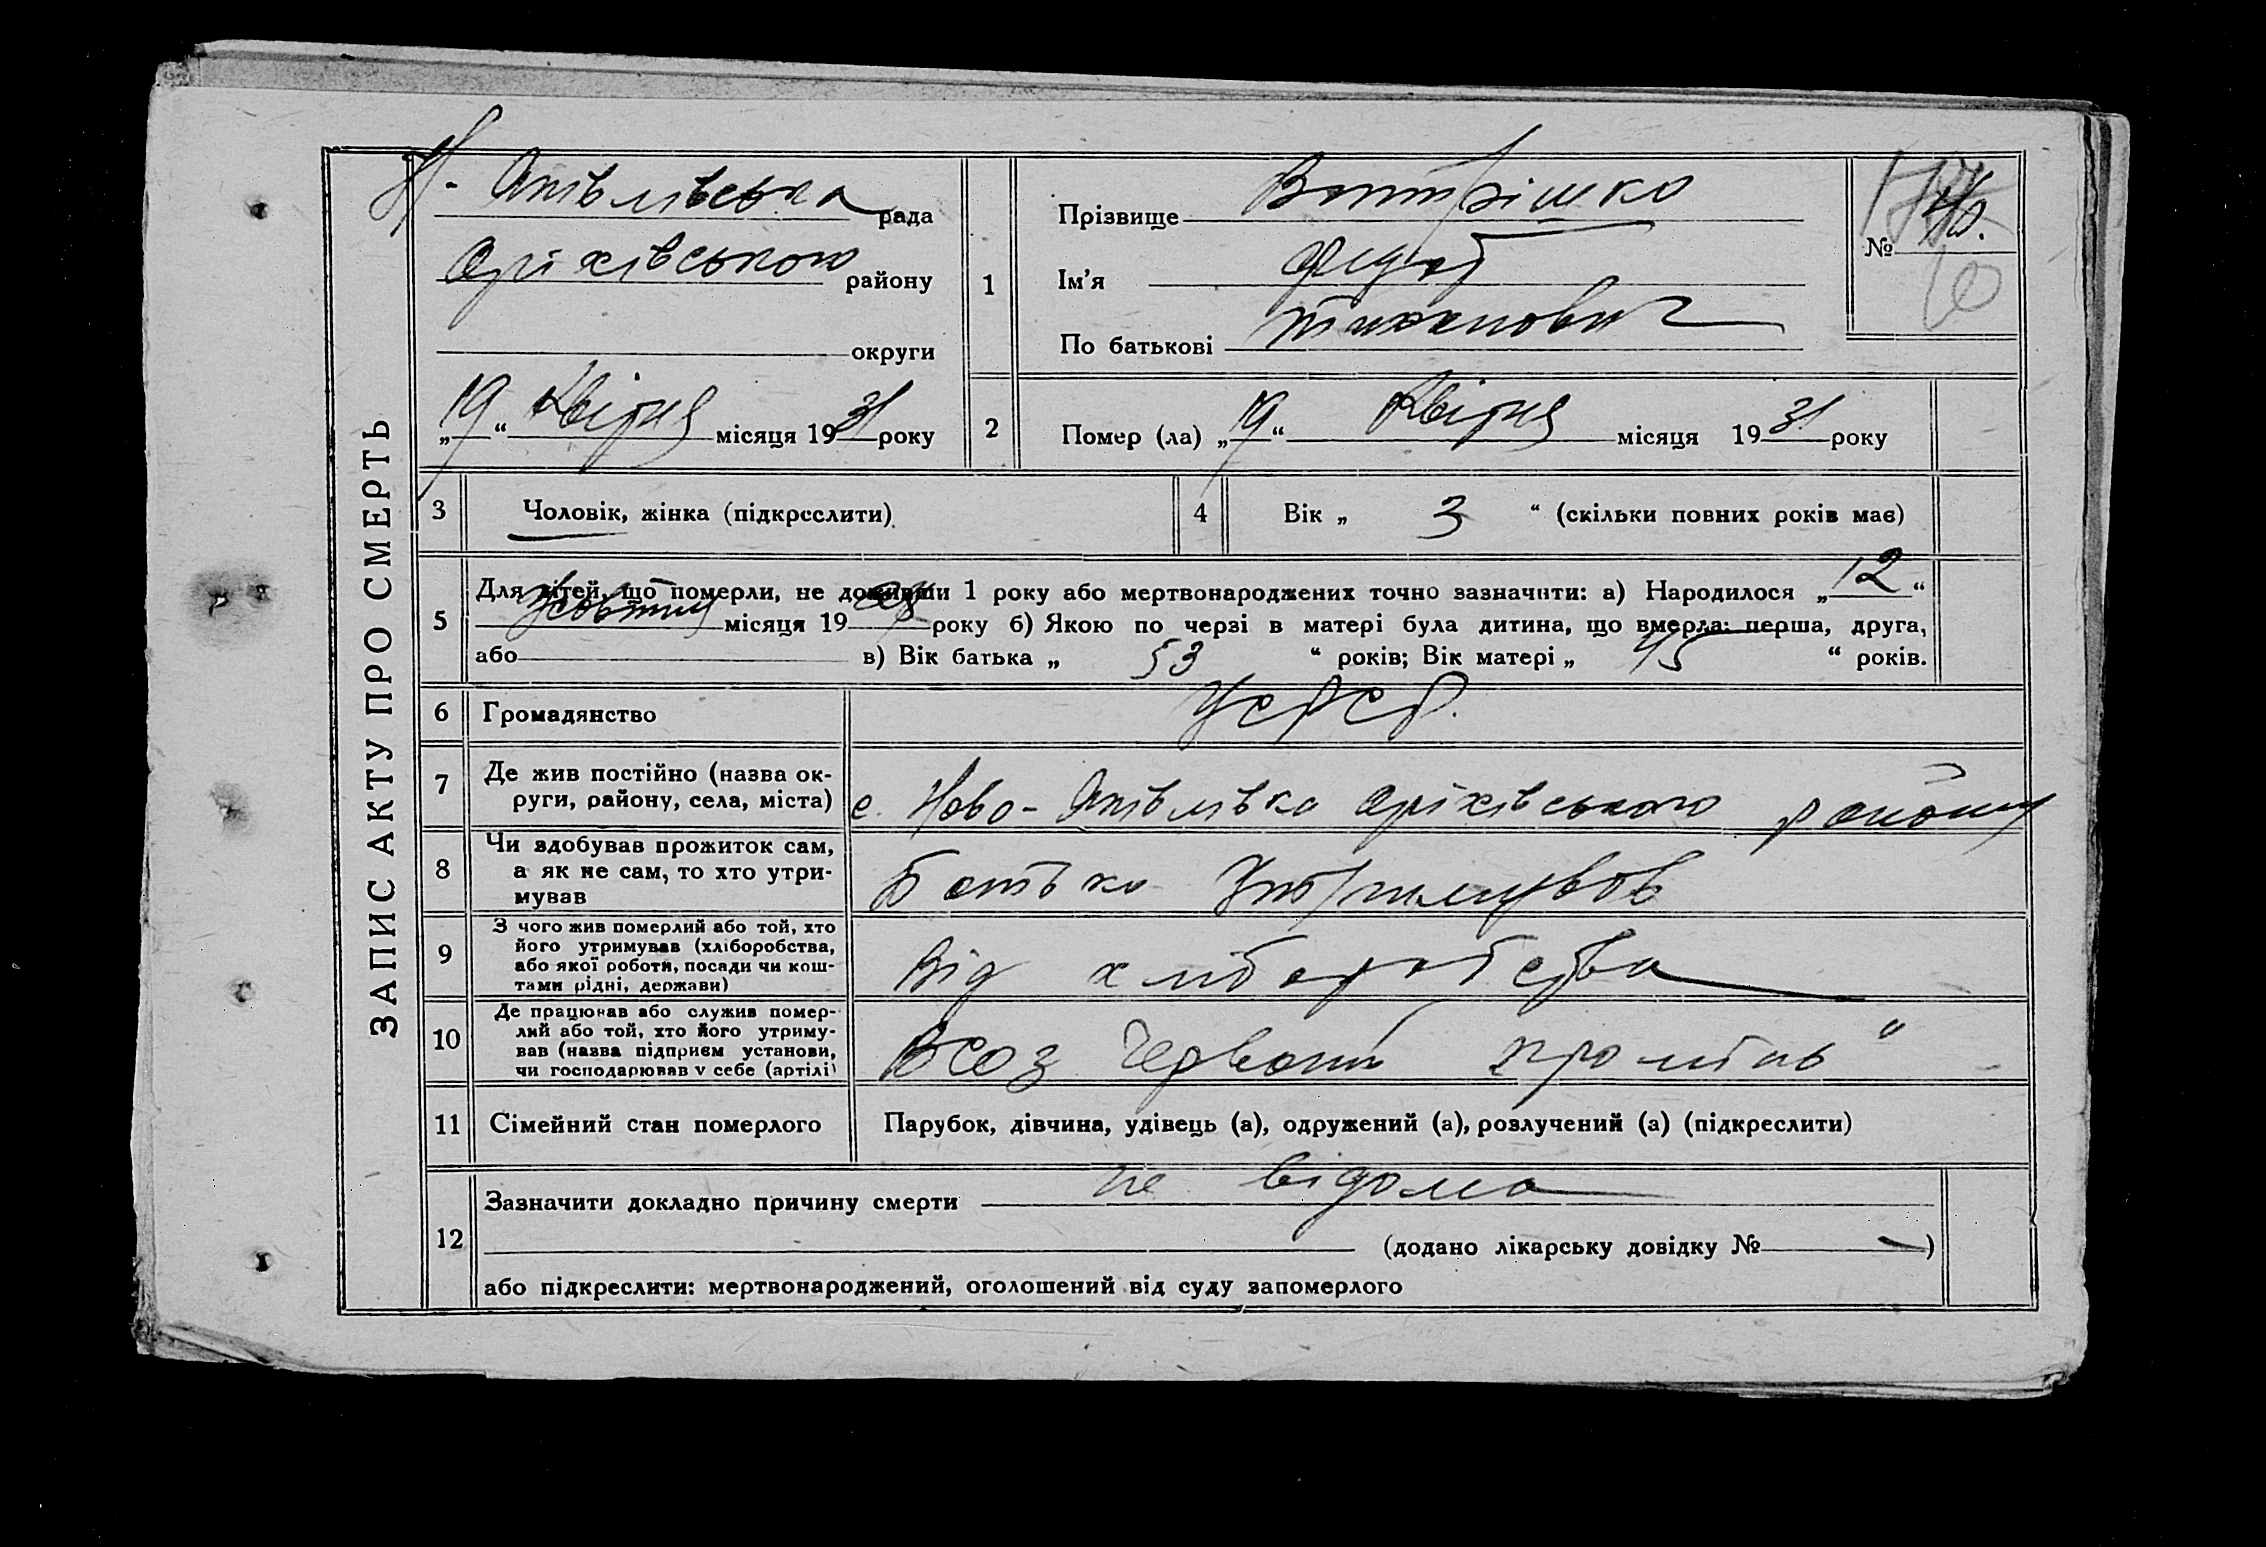 ЗАПИС АКТУ ПРО СМЕРТЬ
Н-Яківлівська рада
Оріхівського району
округи
„19“ Квітня місяця 1931 року
1
Прізвище
Ім'я Федот
По батькові Тихонович
№ 40.
2 Помер (ла) „19“ Квітня місяця 1931 року
3 Чоловік, жінка (підкреслити)
4 Вік „ 3 “ (скільки повних років має)
5 Для дітей, що померли, не доживши 1 року або мертвонароджених точно зазначити: а) Народилося „12“
Жовтня місяця 19 року б) Якою по черзі в матері була дитина, що вмерла: перша, друга,
або в) Вік батька „ 53 “ років; Вік матері „ 45 “ років.
6 Громадянство УСРСР.
7 Де жив постійно (назва ок-
руги, району, села, міста)
с. Ново-Яківлівка Оріхівського району
8 Чи здобував прожиток сам,
а як не сам, то хто утри-
мував
батько Утримував
9 З чого жив померлий або той, хто
його утримував (хліборобства,
або якої роботи, посади чи кош-
тами рідні, держави)
Від хліборобства
10 Де працював або служив помер-
лий або той, хто його утриму-
вав (назва підприєм установи,
чи господарював у себе (артілі)
Всоз Червоний промінь"
11 Сімейний стан померлого
Парубок, дівчина, удівець (а), одружений (а), розлучений (а) (підкреслити)
12 Зазначити докладно причину смерти не відома
(додано лікарську довідку № — )
або підкреслити: мертвонароджений, оголошений від суду запомерлого